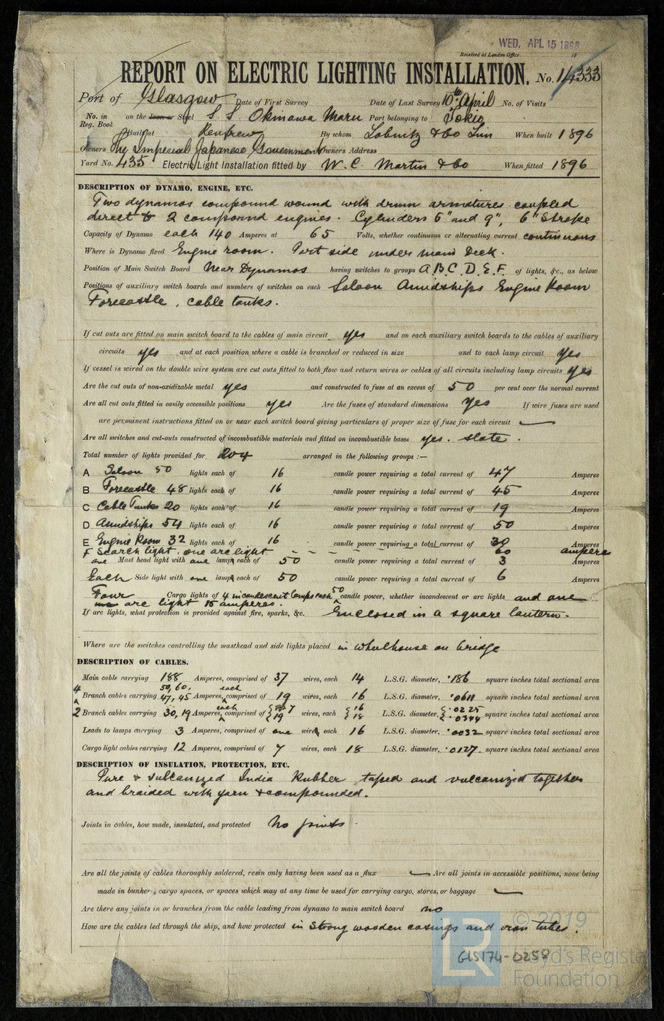 WED. APL 15 1896
Received at London Office 18
REPORT ON ELECTRIC LIGHTING INSTALLATION. No. 14333
Port of Glasgow Date of First Survey Date of Last Survey 10th April No. of Visits
No. in on the Iron or Steel S. S. Okinawa Maru Port belonging to Tokio
Reg. Book
Built at Renfrew By whom Lobnitz & Co Lim When built 1896
Owners The Imperial Japanese Government Owners Address
Yard No. 435 Electric Light Installation fitted by W. C. Martin & Co When fitted 1896
DESCRIPTION OF DYNAMO, ENGINE, ETC.
Two dynamos compound wound with drum armatures coupled
direct to 2 compound engines. Cylinders 5" and 9", 6" Stroke
Capacity of Dynamo each 140 Amperes at 65 Volts, whether continuous or alternating current continuous
Where is Dynamo fixed Engine room. Port side under main deck.
Position of Main Switch Board Near Dynamos having switches to groups A B C D E F of lights, &c., as below
Positions of auxiliary switch boards and numbers of switches on each Saloon Amidships Engine Room
Forecastle, cable tanks.
If cut outs are fitted on main switch board to the cables of main circuit yes and on each auxiliary switch boards to the cables of auxiliary
circuits yes and at each position where a cable is branched or reduced in size and to each lamp circuit yes
If vessel is wired on the double wire system are cut outs fitted to both flow and return wires or cables of all circuits including lamp circuits yes
Are the cut outs of non-oxidizable metal yes and constructed to fuse at an excess of 50 per cent over the normal current
Are all cut outs fitted in easily accessible positions yes Are the fuses of standard dimensions yes If wire fuses are used
are permanent instructions fitted on or near each switch board giving particulars of proper size of fuse for each circuit
Are all switches and cut-outs constructed of incombustible materials and fitted on incombustible bases yes. slate.
Total number of lights provided for 204 arranged in the following groups :—
A Saloon 50 lights each of 16 candle power requiring a total current of 47 Amperes
B Forecastle 48 lights each of 16 candle power requiring a total current of 45 Amperes
C Cable Tanks 20 lights each of 16 candle power requiring a total current of 19 Amperes
D Amidships 54 lights each of 16 candle power requiring a total current of 50 Amperes
E Engine Room 32 lights each of 16 candle power requiring a total current of 30 Amperes
F Search light. one arc light 60 amperes
one Mast head light with one lamp each of 50 candle power requiring a total current of 3 Amperes
Each Side light with one lamp each of 50 candle power requiring a total current of 6 Amperes
Four Cargo lights of 4 incandescent lamps each 50 candle power, whether incandescent or arc lights and one
arc light 15 amperes.
If arc lights, what protection is provided against fire, sparks, &c. Enclosed in a square lantern.
Where are the switches controlling the masthead and side lights placed in wheelhouse on bridge
DESCRIPTION OF CABLES.
Main cable carrying 188 Amperes, comprised of 37 wires, each 14 L.S.G. diameter, .186 square inches total sectional area
50, 60, each
4 Branch cables carrying 47, 45 Amperes, comprised of 19 wires, each 16 L.S.G. diameter, .0611 square inches total sectional area
2 Branch cables carrying 30, 19 Amperes, each comprised of 7 19 wires, each 16 18 L.S.G. diameter, .0225 .0344 square inches total sectional area
Leads to lamps carrying 3 Amperes, comprised of one wire, each 16 L.S.G. diameter, .0032 square inches total sectional area
Cargo light cables carrying 12 Amperes, comprised of 7 wires, each 18 L.S.G. diameter, .0127 square inches total sectional area
DESCRIPTION OF INSULATION, PROTECTION, ETC.
Pure & vulcanized India Rubber taped and vulcanized together
and braided with yarn & compounded.
Joints in cables, how made, insulated, and protected No joints
Are all the joints of cables thoroughly soldered, resin only having been used as a flux Are all joints in accessible positions, none being
made in bunkers, cargo spaces, or spaces which may at any time be used for carrying cargo, stores, or baggage
Are there any joints in or branches from the cable leading from dynamo to main switch board no
How are the cables led through the ship, and how protected in strong wooden casings and iron tubes.
LR © 2019
Lloyd's Register
Foundation
GLS174-0258